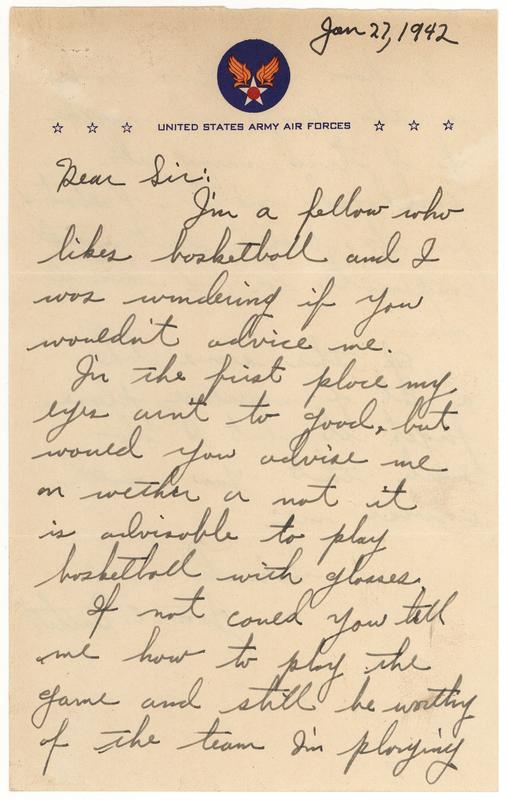 Jan 27, 1942
UNITED STATES ARMY AIR FORCES
Dear Sir:
I'm a fellow who
likes basketball and I
was wondering if you
wouldn't advice me.
In the first place my
eyes ain't to good, but
would you advise me
on wether or not it
is advisable to play
basketball with glasses.
If not could you tell
me how to play the
game and still be worthy
of the team I'm playing